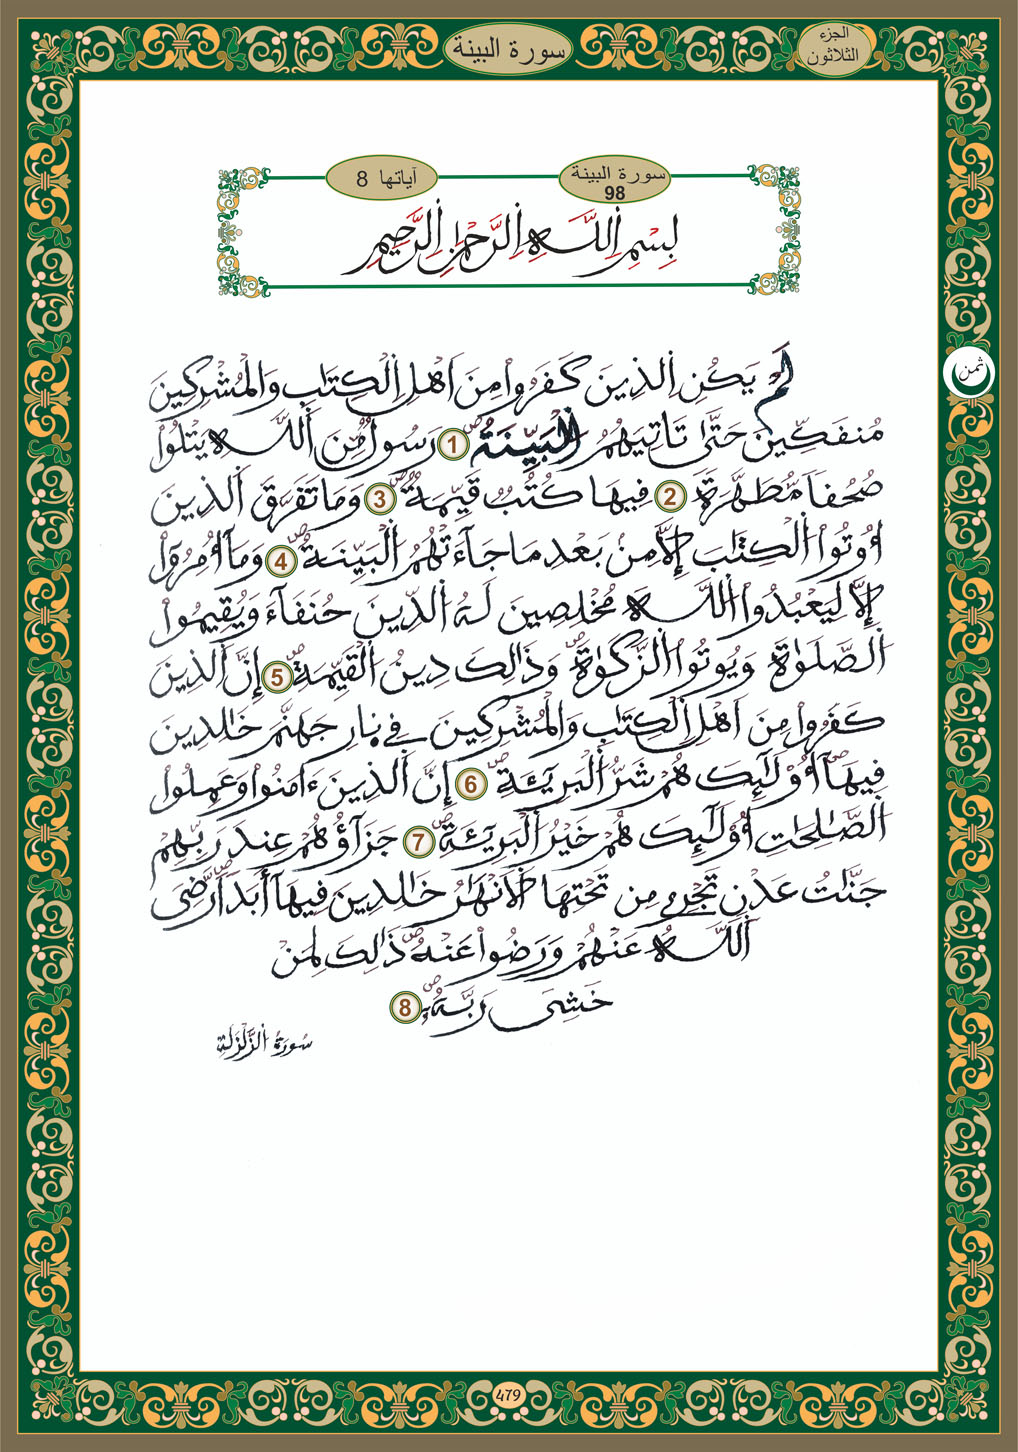 الجزء
الثلاثون
سورة البينة
سورة البينة
98
آياتها 8
بِسْمِ اِللَّهِ اِلرَّحْمَٰنِ اِلرَّحِيمِ
ثمن
لَمْ يَكُنِ اِلذِينَ كَفَرُواْ مِنَ اَهْلِ اِلْكِتَٰبِ وَالْمُشْرِكِينَ
مُنفَكِّينَ حَتَّىٰ تَاتِيَهُمُ اُلْبَيِّنَةُ 1 رَسُولٌ مِّنَ اَللَّهِ يَتْلُواْ
صُحُفاً مُّطَهَّرَةً 2 فِيهَا كُتُبٌ قَيِّمَةٌ 3 وَمَا تَفَرَّقَ اَلذِينَ
أُوتُواْ اُلْكِتَٰبَ إِلَّا مِنۢ بَعْدِ مَا جَآءَتْهُمُ اُلْبَيِّنَةُ 4 وَمَآ أُمِرُوٓاْ
إِلَّا لِيَعْبُدُواْ اُللَّهَ مُخْلِصِينَ لَهُ اُلدِّينَ حُنَفَآءَ وَيُقِيمُواْ
اُلصَّلَوٰةَ وَيُوتُواْ اُلزَّكَوٰةَ وَذَٰلِكَ دِينُ اُلْقَيِّمَةِ 5 إِنَّ اَلذِينَ
كَفَرُواْ مِنَ اَهْلِ اِلْكِتَٰبِ وَالْمُشْرِكِينَ فِي نَارِ جَهَنَّمَ خَٰلِدِينَ
فِيهَآ أُوْلَٰٓئِكَ هُمْ شَرُّ اُلْبَرِيٓـَٔةِ 6 إِنَّ اَلذِينَ ءَامَنُواْ وَعَمِلُواْ
اُلصَّٰلِحَٰتِ أُوْلَٰٓئِكَ هُمْ خَيْرُ اُلْبَرِيٓـَٔةِ 7 جَزَآؤُهُمْ عِندَ رَبِّهِمْ
جَنَّٰتُ عَدْنٍ تَجْرِي مِن تَحْتِهَا اَلَانْهَٰرُ خَٰلِدِينَ فِيهَآ أَبَداً رَّضِيَ
اَللَّهُ عَنْهُمْ وَرَضُواْ عَنْهُ ذَٰلِكَ لِمَنْ
خَشِيَ رَبَّهُۥ 8
سُورَةُ اُلزَّلْزَلَةِ
479